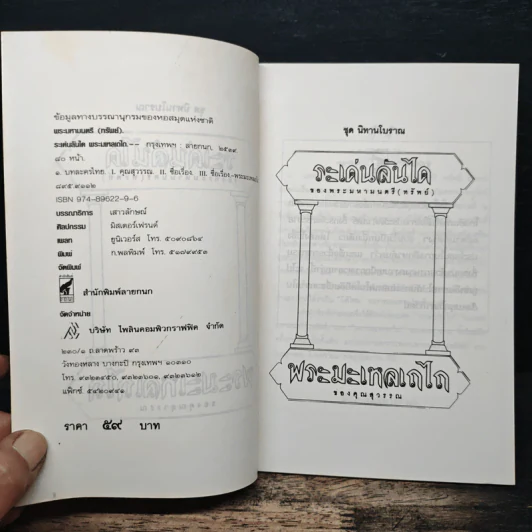 ข้อมูลทางบรรณานุกรมของหอสมุดแห่งชาติ
พระมหามนตรี (ทรัพย์).
ระเด่นลันได พระมะเหลเถไถ.-- กรุงเทพฯ : ลายกนก, ๒๕๓๙
๘๐ หน้า.
๑. บทละครไทย. I. คุณสุวรรณ. II. ชื่อเรื่อง. III. ชื่อเรื่อง:พระมะเหลเถไถ
๘๙๕.๙๑๑๒
ISBN 974-89622-9-6
บรรณาธิการ เสาวลักษณ์
ศิลปกรรม มิสเตอร์เฟรนด์
เพลท ยูนิเวอร์ส โทร. ๕๐๙๐๘๖๔
พิมพ์ ก.พลพิมพ์ โทร. ๕๑๘๙๙๕๓
จัดพิมพ์
สำนักพิมพ์ลายกนก
จัดจำหน่าย
บริษัท ไพลินคอมพิวกราฟฟิค จำกัด
๒๓๐/๑ ถ.ลาดพร้าว ๙๓
วังทองหลาง บางกะปิ กรุงเทพฯ ๑๐๓๑๐
โทร. ๙๓๒๑๔๕๐, ๙๓๒๑๖๐๑, ๙๓๒๓๖๑๒
แฟ็กซ์. ๕๔๒๐๙๔๑
ราคา ๕๙ บาท
ชุด นิทานโบราณ
ระเด่นลันได
ของพระมหามนตรี(ทรัพย์)
พระมะเหลเถไถ
ของคุณสุวรรณ